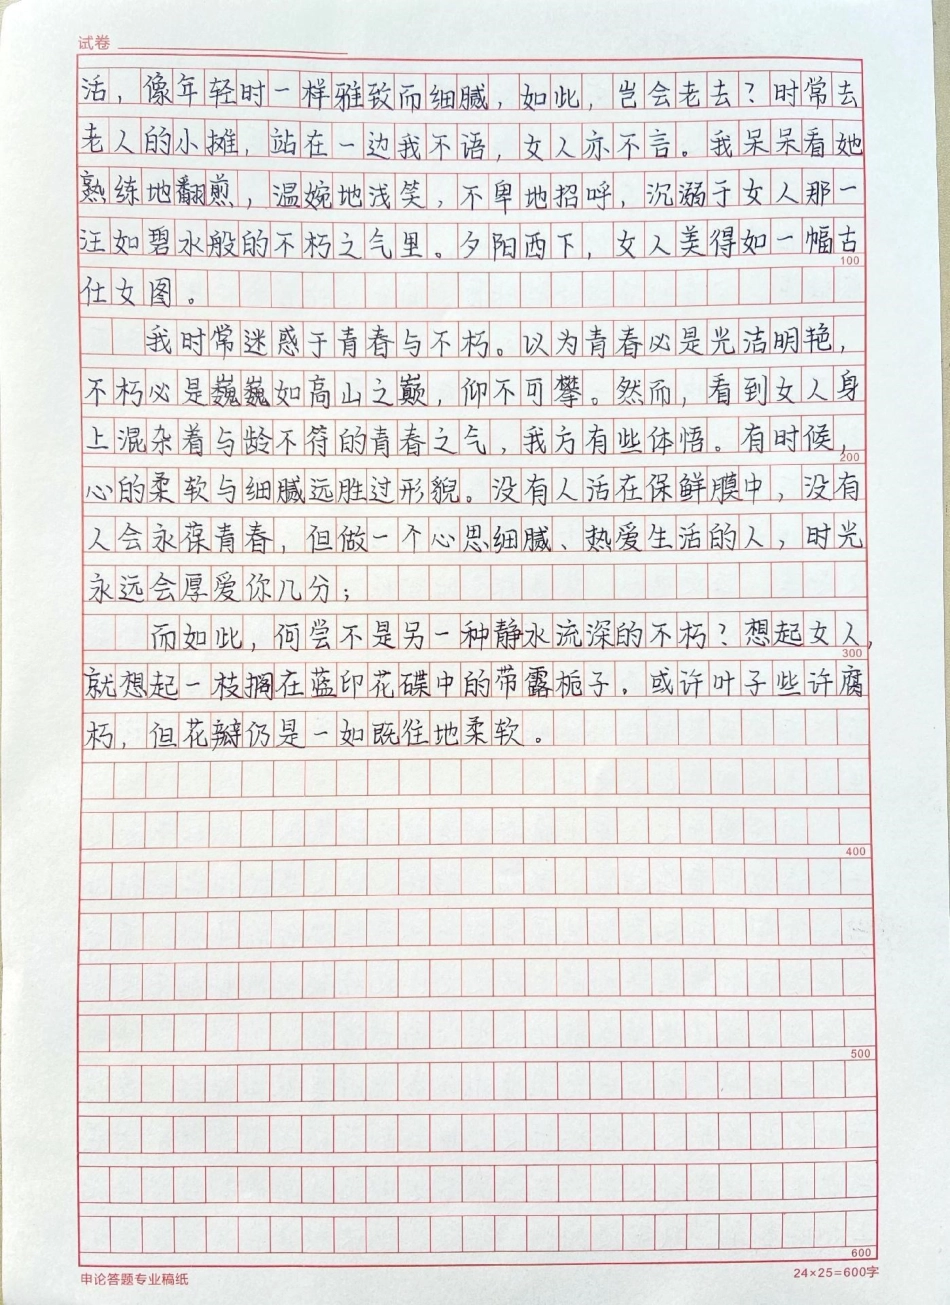 试卷
活，像年轻时一样雅致而细腻，如此，岂会老去？时常去
老人的小摊，站在一边我不语，女人亦不言。我呆呆看她
熟练地翻煎，温婉地浅笑，不卑地招呼，沉溺于女人那一
汪如碧水般的不朽之气里。夕阳西下，女人美得如一幅古
100
仕女图。
我时常迷惑于青春与不朽。以为青春必是光洁明艳，
不朽必是巍巍如高山之巅，仰不可攀。然而，看到女人身
上混杂着与龄不符的青春之气，我方有些体悟。有时候，
200
心的柔软与细腻远胜过形貌。没有人活在保鲜膜中，没有
人会永葆青春，但做一个心思细腻、热爱生活的人，时光
永远会厚爱你几分；
而如此，何尝不是另一种静水流深的不朽？想起女人，
300
就想起一枝搁在蓝印花碟中的带露栀子。或许叶子些许腐
朽，但花瓣仍是一如既往地柔软。
400
500
600
申论答题专业稿纸
24×25=600字